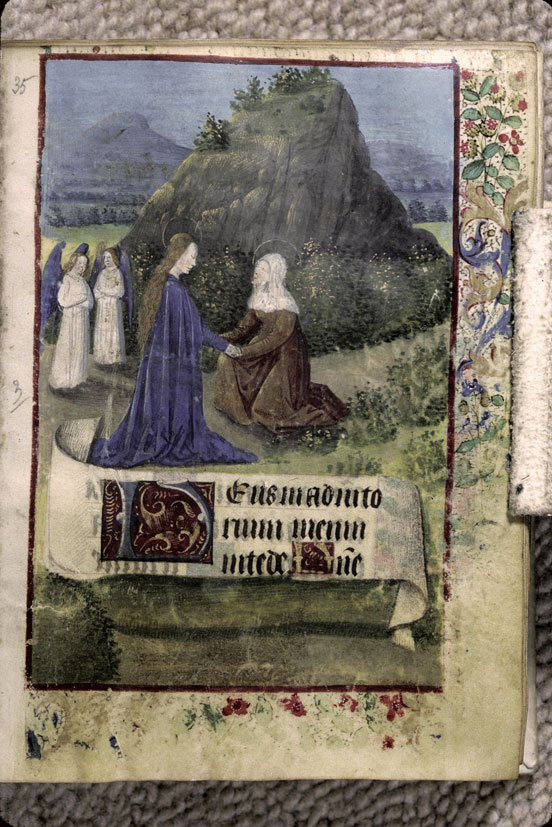 35
DEus in adiuto
rium meum
intēde Dn̄e